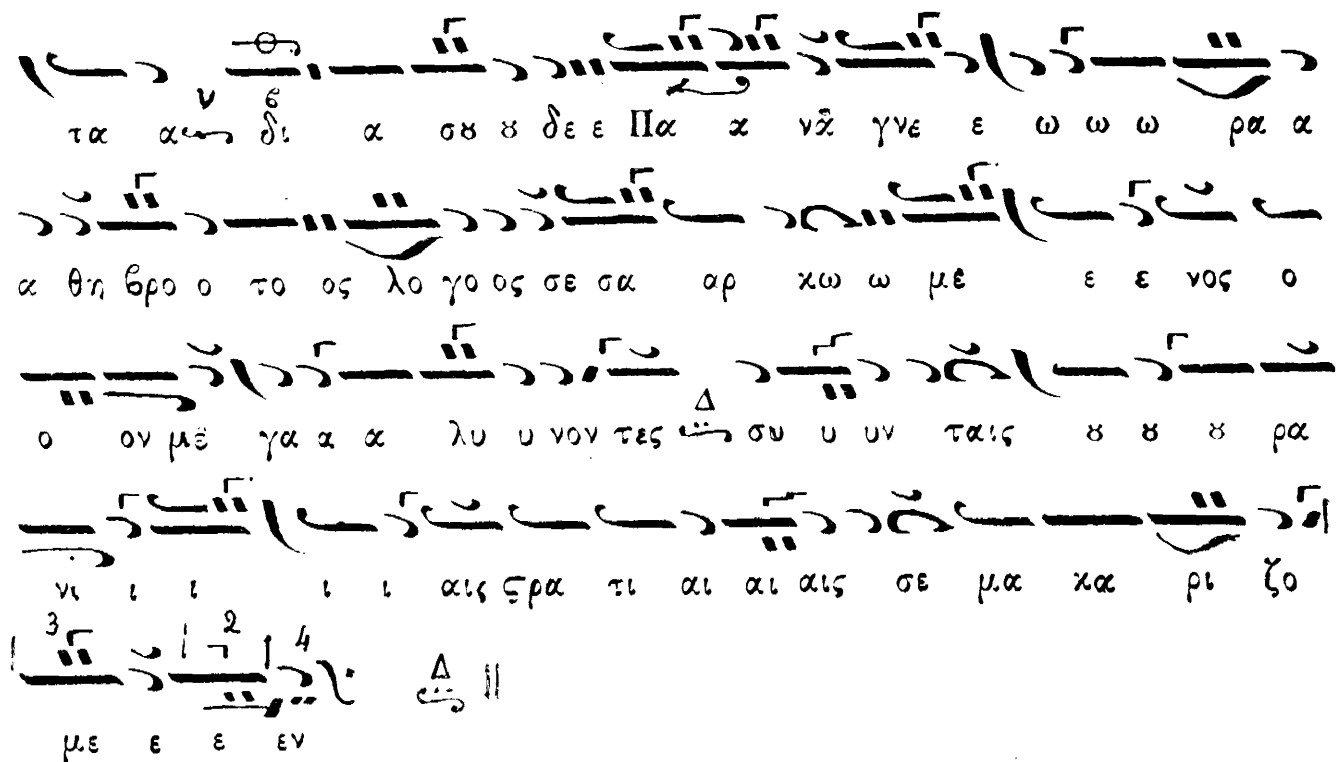 τα α δι α σȣ ȣ δε ε Πα α να γνε ε ω ω ω ρα α
α θη βρο ο το ος λο γο ος σε σα αρ κω ω με ε ε νος ο
ο ον με γα α α λυ υ νον τες Δ συ υ υν ταις ȣ ȣ ȣ ρα
νι ι ι ι ι αις ϛρα τι αι αι αις σε μα κα ρι ζο
3 2 4 Δ
με ε ε εν